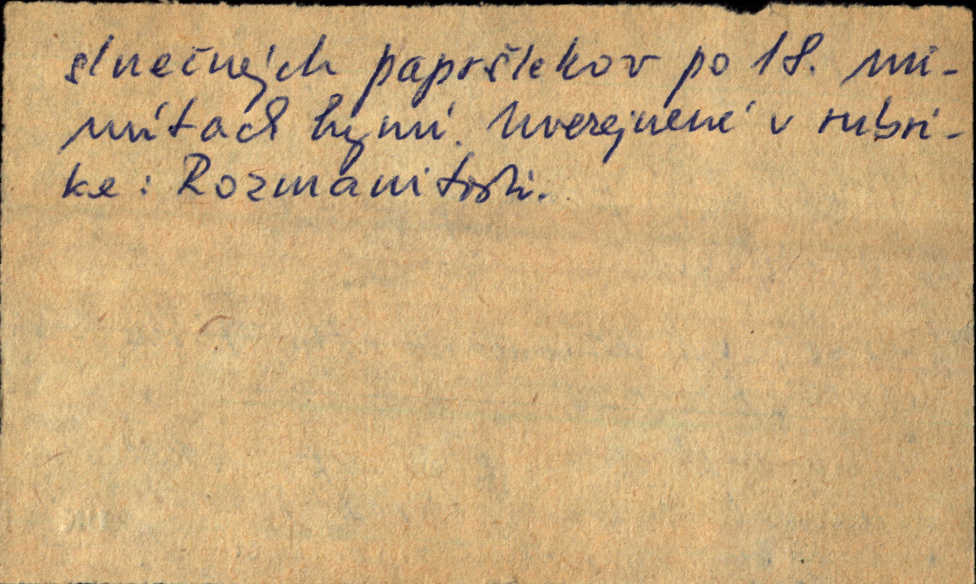 slnečných papršlekov po 18. mi-
nútach hynú. Uverejnené v rubri-
ke: Rozmanitosti.